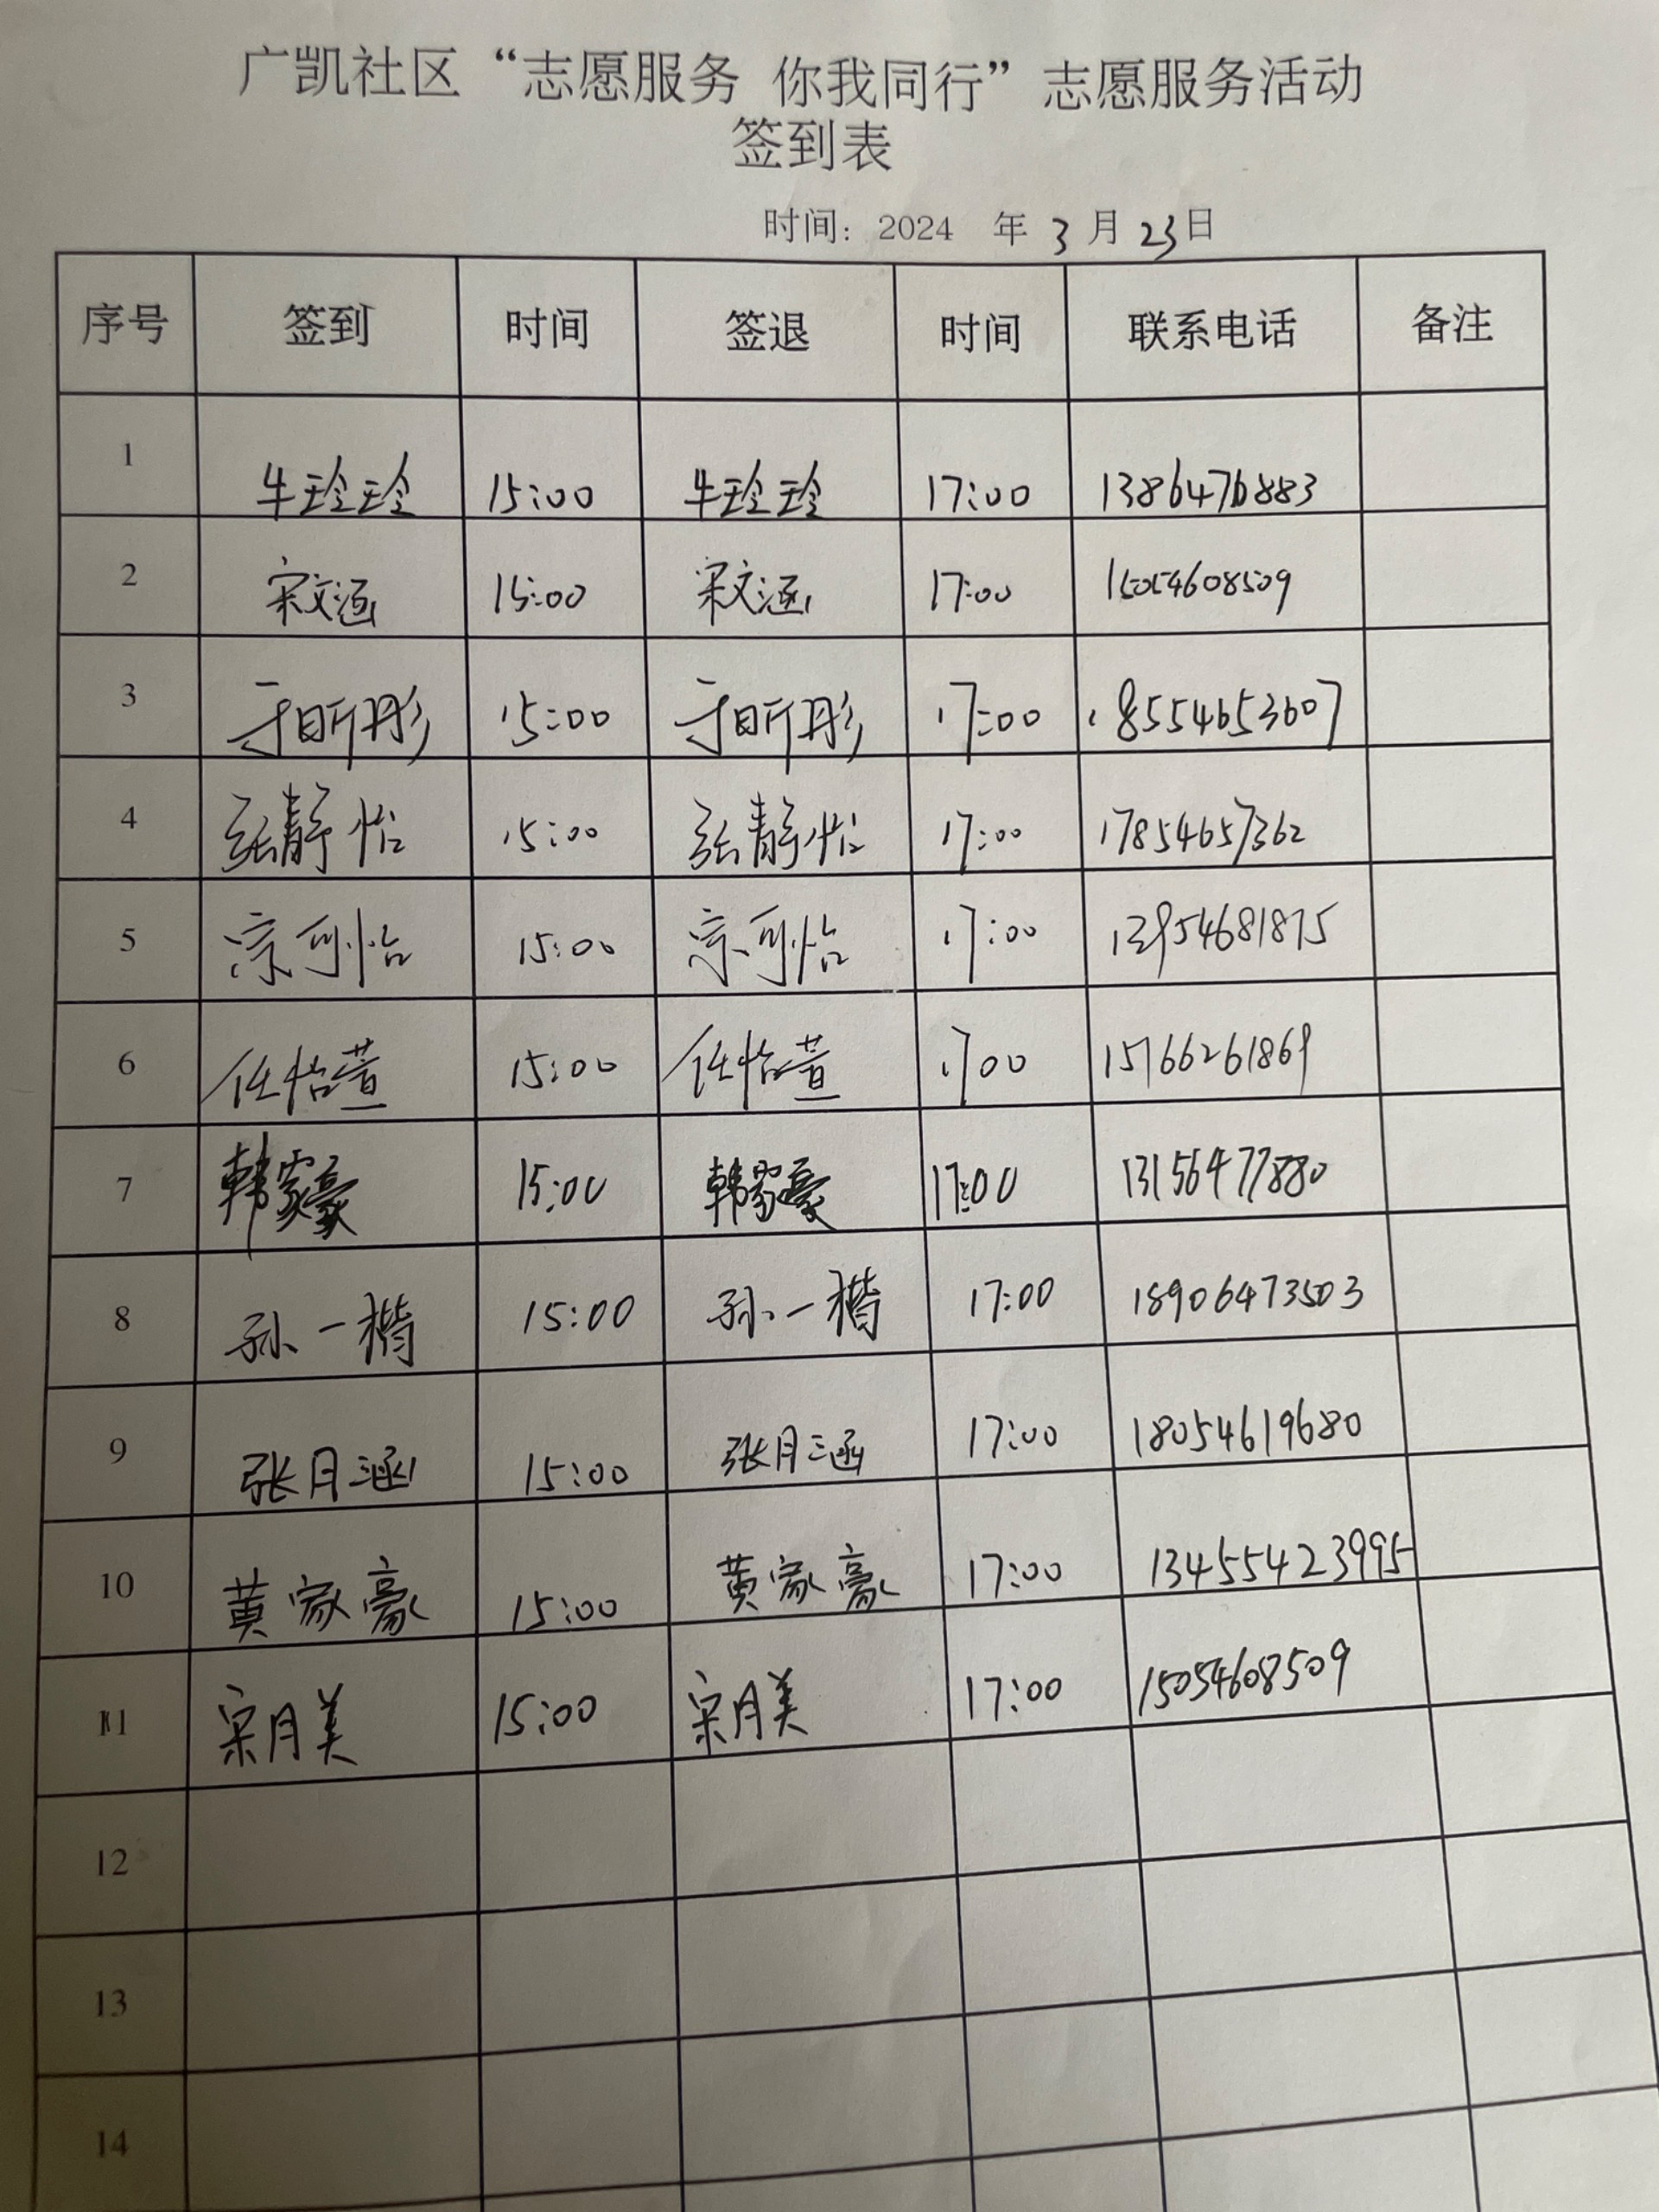 广凯社区“志愿服务 你我同行”志愿服务活动
签到表
时间：2024 年 3 月 23日
序号 签到 时间 签退 时间 联系电话 备注
1 牛玲玲 15:00 牛玲玲 17:00
2 宋文涵 15:00 宋文涵 17:00 15054608509
3 于昕彤 15:00 于昕彤 17:00 18554653607
4 张静怡 15:00 张静怡 17:00 17854657362
5 宗可怡 15:00 宗可怡 17:00 13954681875
6 任怡萱 15:00 任怡萱 1700 15766261869
7 韩家豪 15:00 韩家豪 17:00 13156477880
8 孙一楷 15:00 孙一楷 17:00 18906473503
9 张月涵 15:00 张月涵 17:00 18054619680
10 黄家豪 15:00 黄家豪 17:00 13455423995
11 宋月美 15:00 宋月美 17:00 15054608509
12
13
14